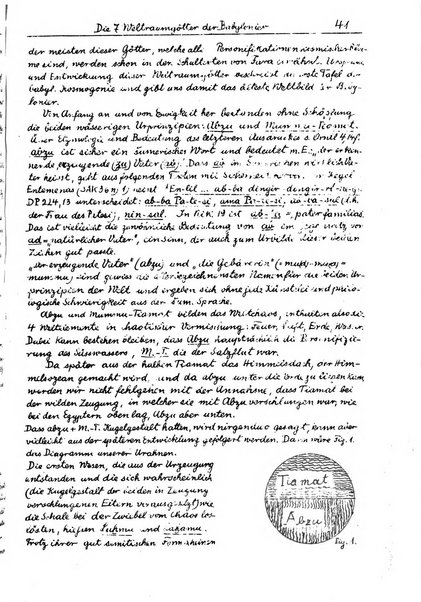 Die 7 Weltraumgötter der Babylonier 41
der meisten dieser Götter, welche alle Personifikationen kosmischer Räu-
me sind, werden schon in den Schultexten von Fara erwähnt. Ursprung
und Entwickelung dieser Weltraumgötter beschreibt die erste Tafel der
babyl. Kosmogonie und gibt uns damit das älteste Weltbild der Baby-
lonier.
Von Anfang an und von Ewigkeit her bestanden ohne Schöpfung
die beiden wässerigen Urprinzipien: Abzu und Mummu-Tiamat.
Über Etymologie und Bedeutung des letzteren Ausdrucks s. Ornil 4
abzu ist sicher ein sumerisches Wort und bedeutet m. E.: „der erken-
nende, (zeugende (zu) Vater (ab)". Dass ab im Sumerischen wirklich Va-
ter heisst, gibt aus folgenden Texten mit Sicherheit hervor. In Kegel
Entemenas (SAK 36n) 1) heisst En-lil ... ab-ba dingir-dingir
DP 224,13 unterscheidet: ab-ba Pa-te-si, ama Pa-te-si,
der Frau des Petesi, nin-sal. In 19 ist ab = pater familias.
Das ist vielleicht die gewöhnliche Bedeutung von ab im
ad = natürlicher Vater", ein Sinn, der auch zum Urbilde
Zichen gut passte.
„Der erzeugende Vater" (abzu) und „die Gebärerin"
mummu) sind gewiss die bezeichnendsten Namen für die beiden Ur-
prinzipien der Welt und ergeben sich ohne jede Künstelei und philo-
logische Schwierigkeit aus der sum. Sprache.
Abzu und Mummu-Tiamat bilden das Weltchaos, enthalten also die
4 Weltelemente in chaotischer Vermischung: Feuer, Luft, Erde, Wasser.
Dabei kann bestehen bleiben, dass Abzu hauptsächlich die Personifizie-
rung des Süsswassers, M.-T. die der Salzflut war.
Da später aus der halben Tiamat das Himmelsdach, der Him-
melsozean gemacht wird, und da abzu unter der Erde zu liegen kam,
werden wir nicht fehlgehen mit der Annahme, dass Tiamat bei
der wilden Zeugung, in welcher sie mit Abzu verschlungen war, wie
bei den Egyptern oben lag, Abzu aber unten.
Dass abzu + M.-T. Kugelgestalt hatten, wird nirgends gesagt, kann aber
vielleicht aus der späteren Entwicklung gefolgert werden. Dann wäre Fig. 1.
das Diagramm unserer Urahnen.
Die ersten Wesen, die aus der Urzeugung
entstanden und die sich wahrscheinlich
(die Kugelgestalt der beiden in Zeugung
verschlungenen Eltern vorausgesetzt) wie
die Schale bei der Zwiebel vom Chaos los-
lösten, hiefsen Luhmu und Lahamu.
Trotz ihrer gut semitischen Formen
Tiamat
Abzu
Fig. 1.